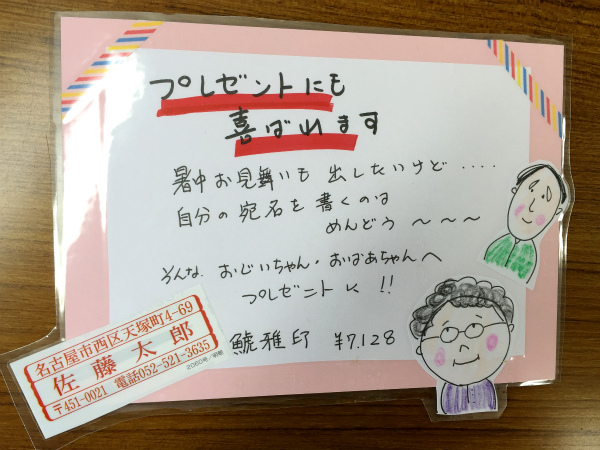 プレゼントにも
喜ばれます
暑中お見舞いも 出したいけど ････
自分の宛名を書くのは
めんどう～～～
そんな、おじいちゃん・おばあちゃんへ
プレゼント !!
雅印 ¥7,128
名古屋市西区天塚町4-69
佐藤太郎
〒451-0021 電話052-521-3635